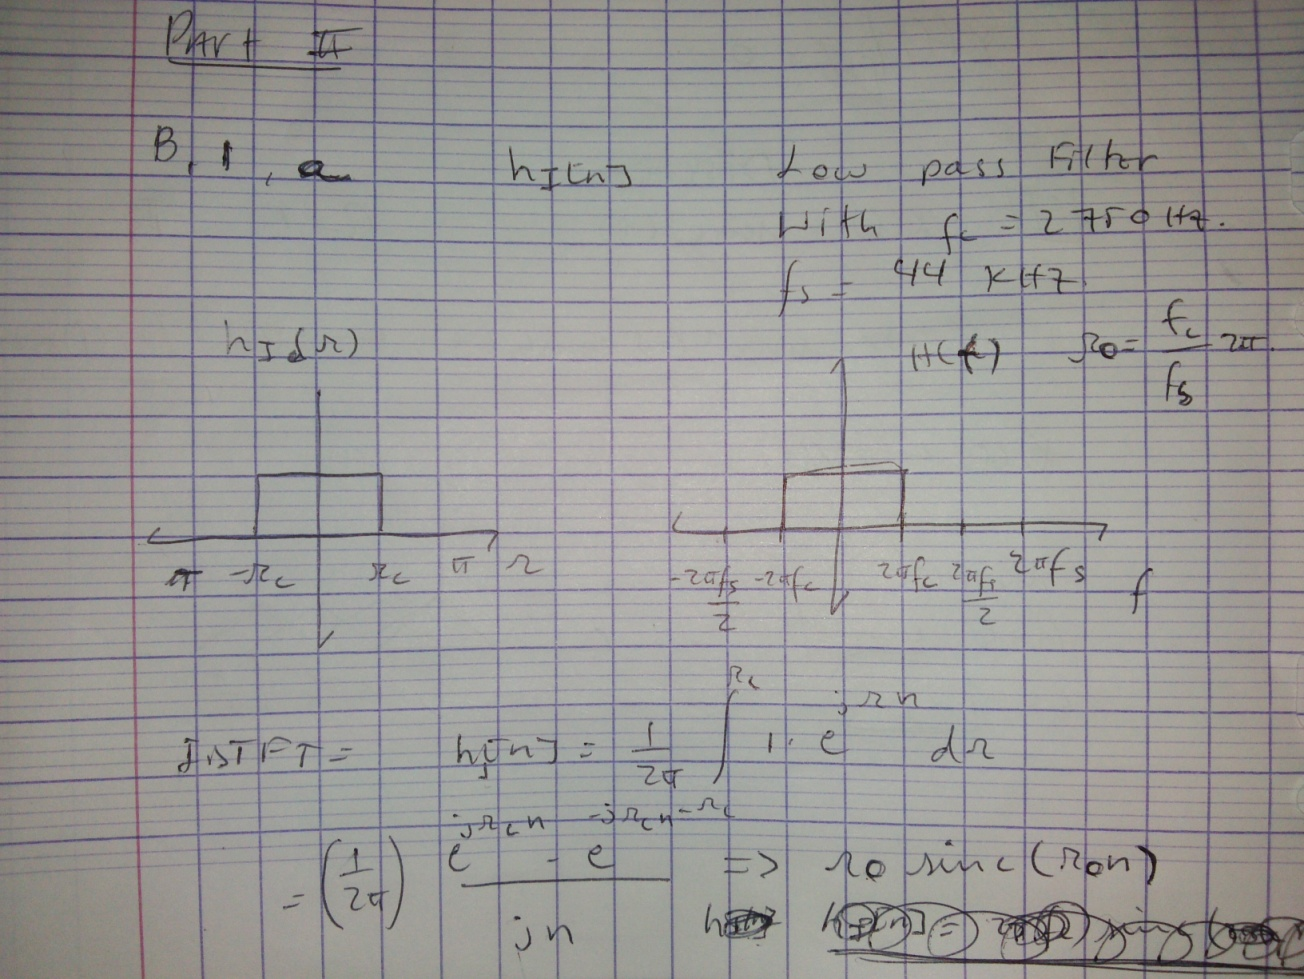 Part II
B, 1, a h_I[n] Low pass Filter
With fc = 2750 Hz.
fs = 44 KHz
h_Id(Ω) H(f) Ω0 = fc/fs 2π.
π -Ωc Ωc π Ω
-2πfs/2 -2πfc 2πfc 2πfs/2 2πfs f
IDTFT = h_I[n] = 1/2π ∫_{-Ωc}^{Ωc} 1. e^{jΩn} dΩ
= (1/2π) (e^{jΩcn} - e^{-jΩcn})/jn => Ω0 sinc(Ω0n)